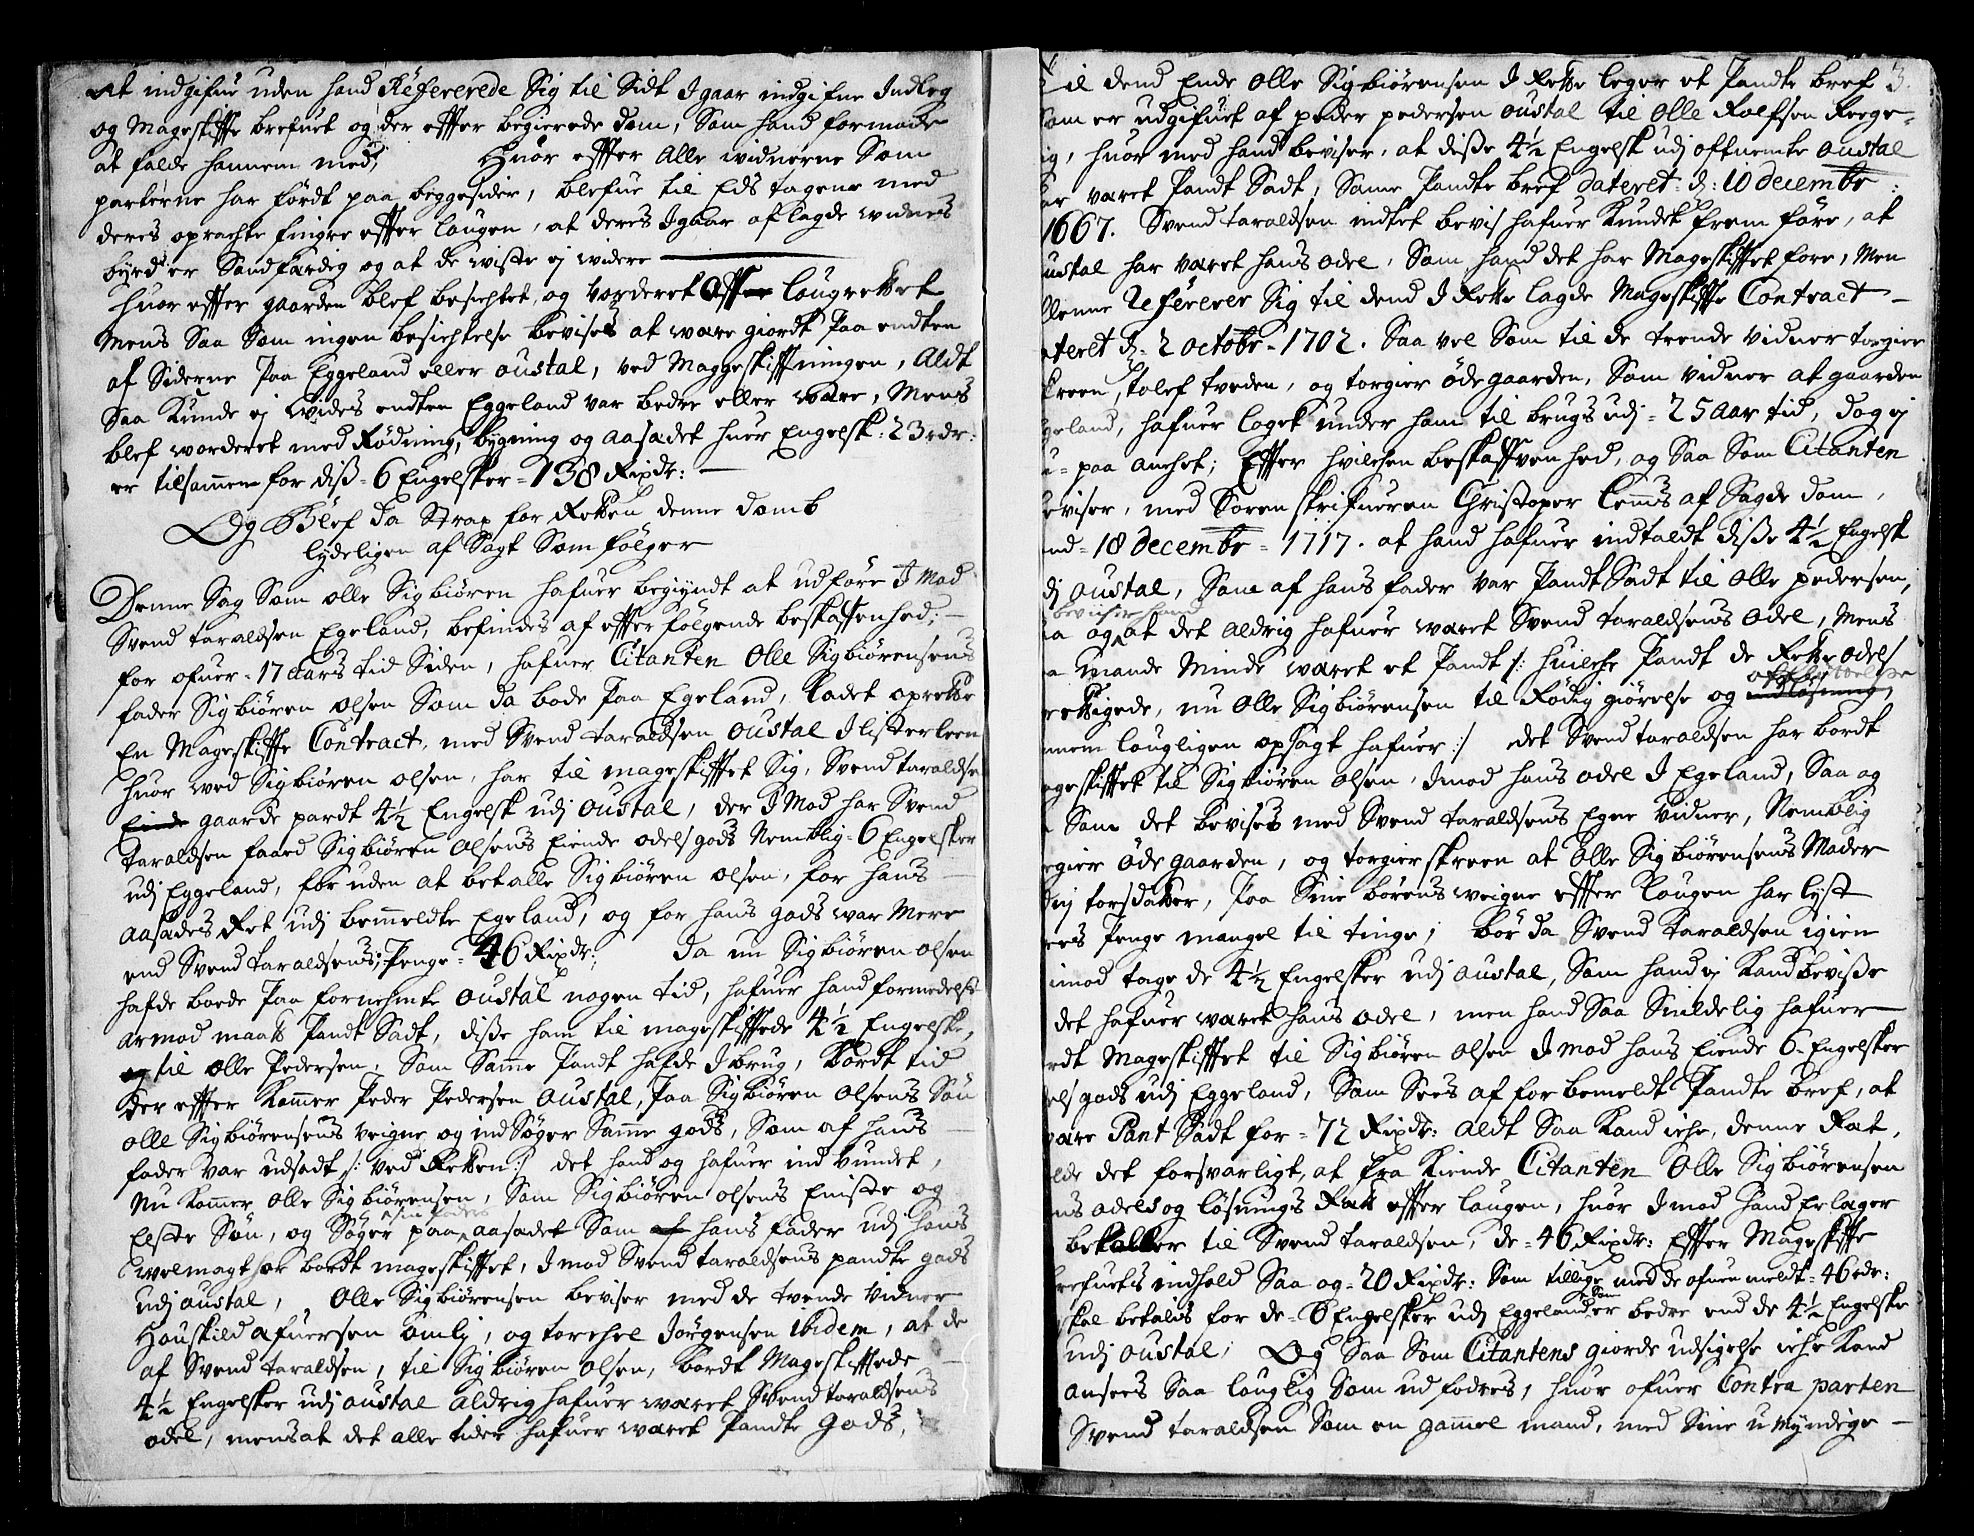 At indgifue uden hand Refererede Sig til Sidt Igaar indgifne Indleg
og Mageskiffte brefuet og der effter begierede dom, Som hand formode
at falde hannem med, Huor effter Alle widnerne Som
parterne har fördt paa beggesider, blefue til Eds tagene med
deres oprachte fingre effter lougen, at deres Igaar aflagde widnes
byrd er Sandfærdig og at de wiste ej widere
Huor effter gaarden blef besichtet og Vorderet Aff lougrettet
Mens Saa Som ingen besichtelse bevises at ware giordt Paa endten
af Siderne Paa Eggeland eller oustal, ved Maggeskifftningen, Aldt
Saa Kunde ej wides endten Eggeland var bedre eller wære, Mens
blef worderet med Rödning, bygning og aasædet huer Engelsk: 23 rdr:
er tilsammen for diss 6 Engelsker = 138 Rixdr:
Og Blef da Strax for Retten denne domb
lydeligen af Sagt Som fölger
Denne Sag Som olle Sigbiören hafuer begyndt at udföre I Mod
Svend taraldsen Egeland, befindes af effter fölgende beskaffenhed;
for ofuer = 17 aars tid Siden, hafuer Citanten Olle Sigbiörensens
fader Sigbiören olsen Som da bode Paa Egeland, ladet oprette
En Mageskiffte Contract, med Svend taraldsen oustal I listerleen
huor ved Sigbiören olsen, har til mageskifftet Sig, Svend taraldsen
Eiende gaarde pardt 4½ Engelsk udj oustal, der I Mod har Svend
taraldsen faaed Sigbiören Olsens Eiende odels gods Nemblig = 6 Engelsker
udj Eggeland, for uden at betalle Sigbiören olsen, for hans
aasædes Ret udj bemeldte Egeland, og for hans gods war Mere
end Svend taraldsens; Penge = 46 Rixdr; da nu Sigbiören olsen
hafde boede Paa fornefnte oustal nogen tid, hafuer hand formedelst
armod maat Pandt Sadt, disse ham til mageskifftede 4½ Engelske,
og til olle Pedersen, Som Samme Pandt hafde I brug, kordt tid
der effter Kommer Peder Pedersen oustal, Paa Sigbiören Olsens Sön
olle Sigbiörensens Veigne og ind Söger Samme gods, Som af hans
fader var udsadt /: ved Retten :/ det hand og hafuer ind Vundet,
Nu Kommer olle Sigbiörensen, Som Sigbiören olsens Eniste og
Elste Sön, og Söger paa sin faders aasædet Som af hans fader udj hans
welmagt har bordt mageskifftet, I mod Svend taraldsens pandte gods
udj oustal, Olle Sigbiörensen beviser med de tvende Vidner
Houskild Afuersen omli, og torchel Jörgensen ibidem, at de
af Svend taraldsen, til Sigbiören Olsen, bordt Mageskifftede
4½ Engelsker udj oustal aldrig hafuer waret Svend taraldsens
odel, mens at det alle tider hafuer waret Pandte gods,
3.
til dend Ende olle Sigbiörensen I Rette leger et Pandte bref
som er udgifuet af peder pedersen oustal til Olle Rolfsen Rege=
ig, huor med hand beviser, at disse 4½ Engelsk udj offnemte oustal
har varet Pandt Sadt, Same Pandte bref dateret: d: 10 decembr:
1667. Svend taraldsen indtet bevis hafuer Kundet frem före, at
oustal har varet hans odel, Som hand det har Mageskifftet fore, Men
allenne Refererer Sig til dend I Rette lagde Mageskiffte Contract
dateret d: 2 octobr = 1702. Saa vel Som til de trende vidner torgier
skreen, tolef tveden, og torgier öde gaarden, Som vidner at gaarden
Egeland, hafuer laget under ham til brugs udj = 25 Aar tid, dog ej
u = paa anchet; Effter hvilchen beskaffvenhed, og Saa Som Citanten
beviser, med Soren skrifueren Christoper lemms af Sagde dom,
end = 18 decembr = 1717. at hand hafuer indtaldt disse 4½ Engelsk
udj oustal, Same af hans fader var Pandt Sadt til olle pedersen,
saa og beviser hand at det aldrig hafuer waret Svend taraldsens odel, Mens
fra Mande Minde waret et Pandt /: huilche Pandt de Rette odels
berettigede, nu olle Sigbiörensen til Rödig giörelse og indlösning
hannem lougligen opsagt hafuer :/ det Svend taraldsen har bordt
mageskifftet til Sigbiören olsen, Imod hans odel I Egeland, Saa og
Som det bevises med Svend taraldsens Egne vidner, Nemblig
torgier öde gaarden, og torgier skreen at olle Sigbiörensens Moder
Siij torsdatter, Paa Sine börens veigne effter lougen har lyst
deres Penge mangel til tinge; bör da Svend taraldsen igien
imod tage de 4½ Engelsker udj oustal, Som hand ej kand bevisse
det hafuer waret hans odel, men hand Saa Snildelig hafuer
bordt Mageskifftet til Sigbiören olsen Imod hans Eiende 6 = Engelsker
odels gods udj Eggeland, Som Sees af for bemeldt Pandte bref, at
vare Pant Sadt for = 72 Rixdr: aldt Saa Kand iche, denne Ret,
holde det forsvarligt, at fra Kiende Citanten Olle Sigbiörensen
hans odels og lösnings Rett effter lougen, huor Imod hand Erlæger
betaller til Svend taraldsen, de = 46 Rixdr: Effter Mageskiffte
brefuetis indhold Saa og = 20 Rixdr: Som tillige med de ofuen meldt = 46 rdr:
skal betales for de = 6 Engelsker udj Eggeland Som er bedre end de 4½ Engelske
udj oustal; Og Saa Som Citantens giorde udsigelse iche Kand
ansees Saa louglig Som udfodres, huor ofuer Contra parten
Svend taraldsen Som en gammel mand, med Sine u Myndige